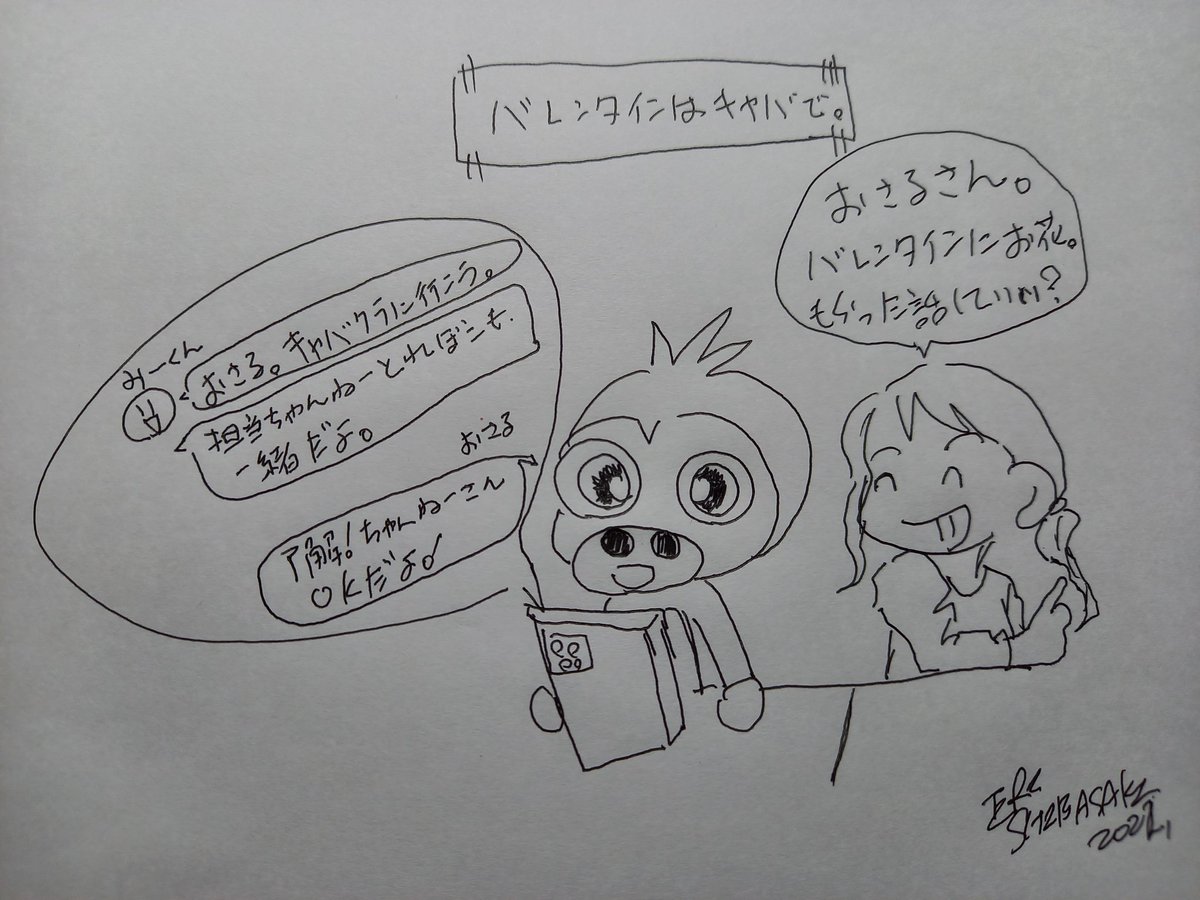 バレンタインはキャバで。
おさるさん。
バレンタインにお花。
もらった話していい?
みーくん
おさる。キャバクラに行こう。
担当ちゃんねーとれぼこも
一緒だよ。
おさる
了解!ちゃんねーさん
OKだよ。
SHIBASAKI